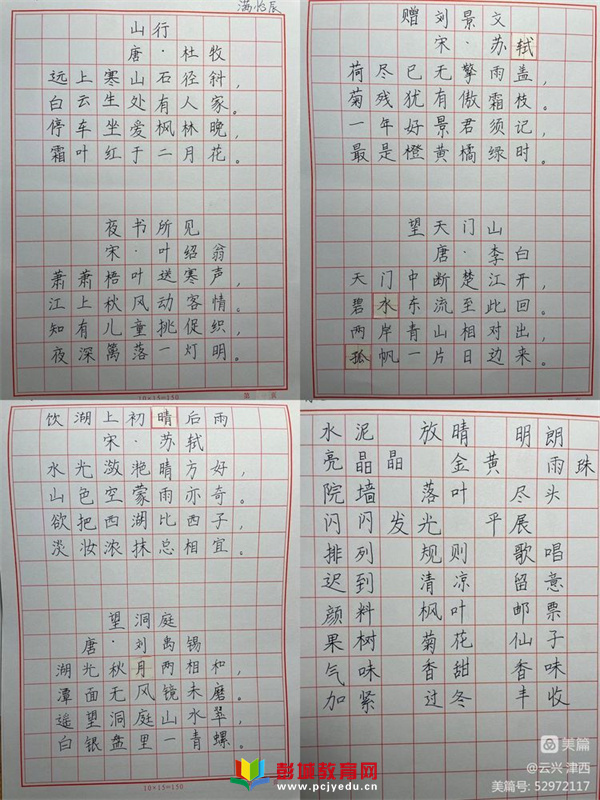 满怡辰
山行
唐·杜牧
远上寒山石径斜,
白云生处有人家。
停车坐爱枫林晚,
霜叶红于二月花。
夜书所见
宋·叶绍翁
萧萧梧叶送寒声,
江上秋风动客情。
知有儿童挑促织,
夜深篱落一灯明。
10×15=150
第 页
赠刘景文
宋·苏轼
荷尽已无擎雨盖,
菊残犹有傲霜枝。
一年好景君须记,
最是橙黄橘绿时。
望天门山
唐·李白
天门中断楚江开,
碧水东流至此回。
两岸青山相对出,
孤帆一片日边来。
饮湖上初晴后雨
宋·苏轼
水光潋滟晴方好,
山色空蒙雨亦奇。
欲把西湖比西子,
淡妆浓抹总相宜。
望洞庭
唐·刘禹锡
湖光秋月两相和,
潭面无风镜未磨。
遥望洞庭山水翠,
白银盘里一青螺。
10×15=150
水泥 放晴 明朗
亮晶晶 金黄 雨珠
院墙 落叶 尽头
闪闪发光 平展
排列 规则 歌唱
迟到 清凉 留意
颜料 枫叶 邮票
果树 菊花 仙子
气味 香甜 香味
加紧 过冬 丰收
彭城教育网
www.pcjyedu.cn
美篇
@云兴·津西
美篇号: 52972117